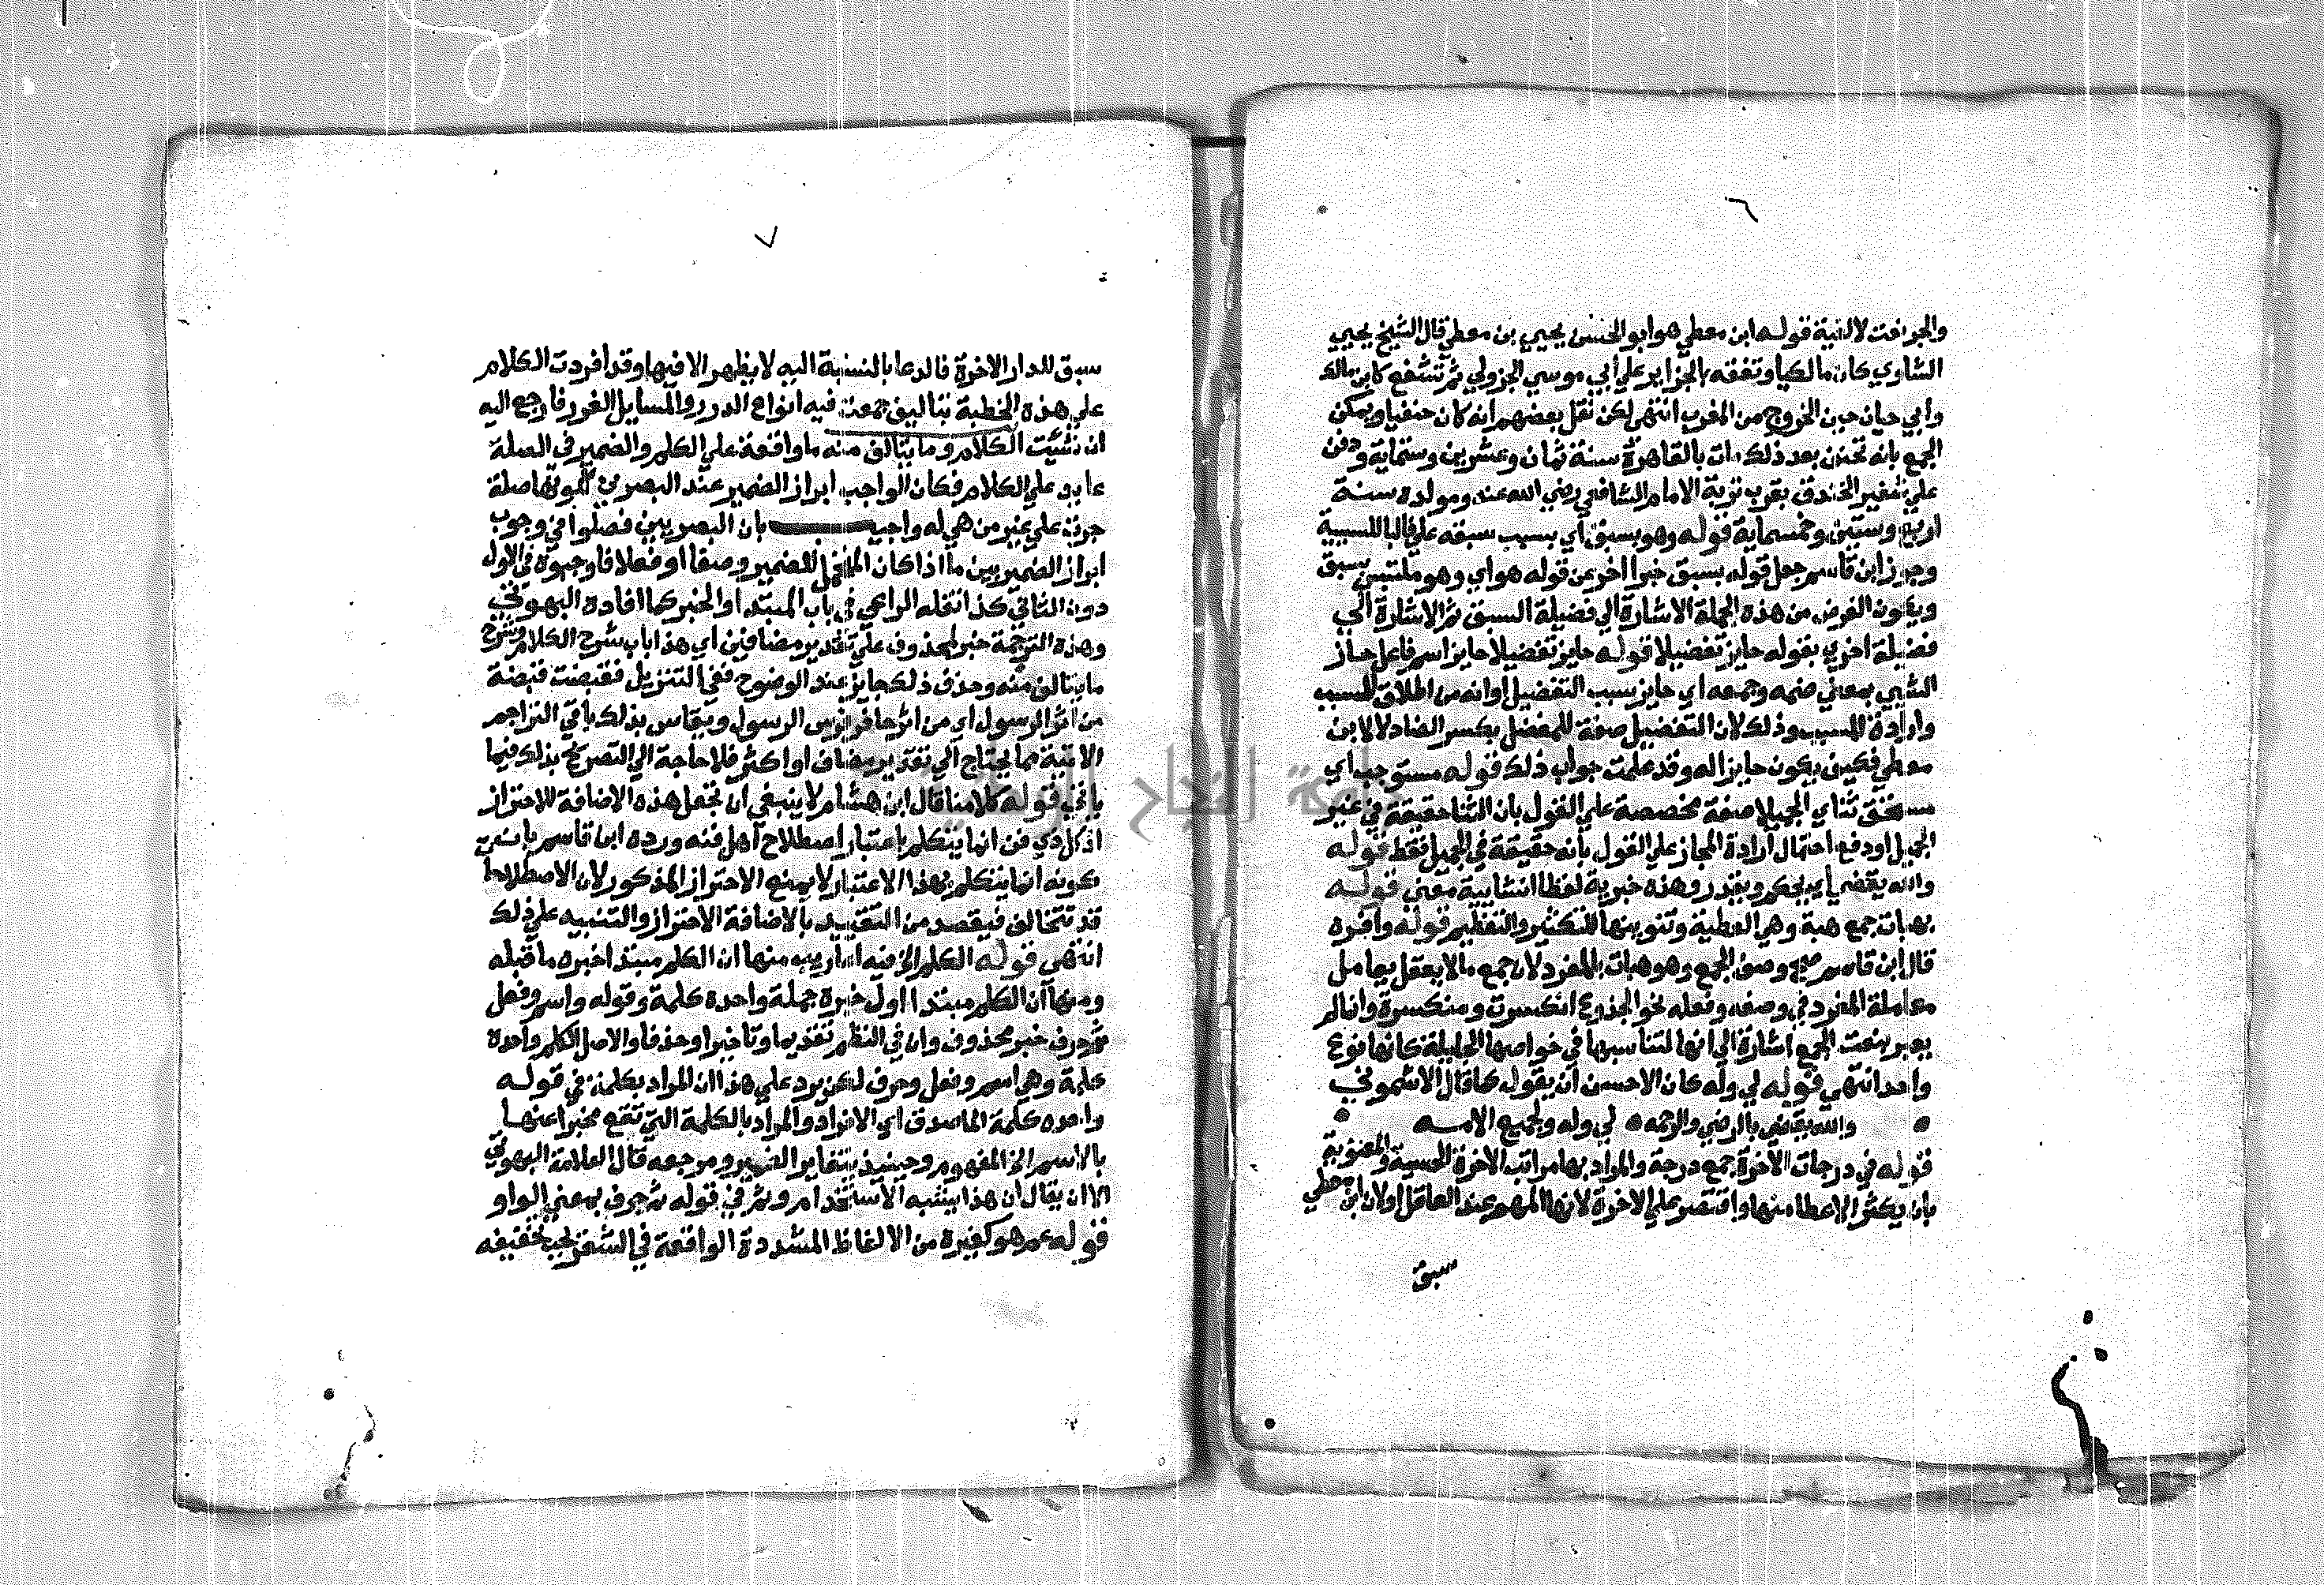 والجر نعت لالفية قوله ابن معطي هو ابو الحسن يحيي بن معطي قال الشيخ يحيي
الشاوي كان مالكيا وتفقه بالجزاير علي ابي موسي الجزولي ثم تشفع كابن مالك
وابي حيان حين الخروج من المغرب انتهي لكن نقل بعضهم انه كان حنفيا ويمكن
الجمع بانه تحنف بعد ذلك مات بالقاهرة سنة ثمان وعشرين وستماية ودفن
علي شفير الخندق بقرب تربة الامام الشافعي رضي الله عنه ومولده سنة
اربع وستين وخمسماية قوله وهو بسبق اي بسبب سبقه علي فالبا للسببية
وجوز ابن قاسم جعل قوله بسبق خبرا اخر عن قوله هو اي وهو ملتبس بسبق
ويكون الغرض من هذه الجملة الاشارة الي فضيلة السبق ثم الاشارة الي
فضيلة اخري بقوله حايز تفضيلا قوله حايز تفضيلا حايز اسم فاعل حاز
الشي بمعني ضمه وجمعه اي حايز سبب التفضيل اوانه من اطلاق المسبب
وارادة السبب وذلك لان التفضيل صفة للمفضل بكسر الضاد لا لابن
معطي فكيف يكون حايزا له وقد علمت جواب ذلك قوله مستوجب اي
مستحق ثناي الجميلا صفة مخصصة علي القول بان الثنا حقيقة في غير
الجميل او دفع احتمال ارادة المجاز علي القول بانه حقيقة في الجميل فقط قوله
والله يقضي اي يحكم ويقدر وهذه خبرية لفظا انشايية معني قوله
بهبات جمع هبة وهي العطية وتنوينها للتكثير والتعظيم قوله وافره
قال ابن قاسم صح وصف الجمع وهو هبات بالمفرد لان جمع ما لا يعقل يعامل
معاملة المفرد في وصفه وفعله نحو الجذوع انكسرت ومنكسرة وانما لم
يعبر بنعت الجمع اشارة الي انها لتناسبها في خواصها الجليلة كانها نوع
واحد انتهي قوله لي وله كان الاحسن ان يقول كما قال الاشموني
والله يقضي بالرضي والرحمه لي وله ولجميع الامه
قوله في درجات الاخرة جمع درجة والمراد بها مراتب الاخرة الحسية والمعنوية
بان يكثر الاعطا منها واقتصر علي الاخرة لانها المهم عند العاقل اولان ابن معطي
سبق
سبق للدار الاخرة فالدعا بالنسبة اليه لا يظهر الا فيها وقد افردت الكلام
علي هذه الخطبة بتاليف جمعت فيه انواع الدرر والمسايل الغرر فارجع اليه
ان شيت الكلام وما يتالف منه ما واقعة علي الكلم والضمير في الصلة
عايد علي الكلام فكان الواجب ابراز الضمير عند البصريين لكونها صلة
جرت علي غير من هي له واجيب بان البصريين فصلوا في وجوب
ابراز الضمير بين ما اذا كان المتحمل للضمير وصفا او فعلا فاوجبوه في الاول
دون الثاني كذا نقله الراعي في باب المبتدا والخبر كما افاده البهوتي
وهذه الترجمة خبر لمحذوف علي تقدير مضافين اي هذا باب شرح الكلام وشرح
ما يتالف منه وحذف ذلك جايز عند الوضوح ففي التنزيل فقبضت قبضة
من اثر الرسول اي من اثر حافر فرس الرسول ويقاس بذلك باقي التراجم
الاتية مما يحتاج الي تقدير مضاف او اكثر فلا حاجة الي التصريح بذلك فيما
ياتي قوله كلامنا قال ابن هشام لا ينبغي ان تجعل هذه الاضافة للاحتراز
اذ كل ذي فن انما يتكلم باعتبار اصطلاح اهل فنه ورده ابن قاسم بان
كونه انما يتكلم بهذا الاعتبار لا يمنع الاحتراز المذكور لان الاصطلاحا
قد تتخالف فيقصد من التقييد بالاضافة الاحتراز والتنبيه علي ذلك
انتهي قوله الكلم الخ فيه اعاريب منها ان الكلم مبتدا خبره ما قبله
ومنها ان الكلم مبتدا اول خبره جملة واحده كلمة وقوله واسم وفعل
ثم حرف خبر محذوف وان في النظم تقديما وتاخيرا وحذفا والاصل الكلم واحده
كلمة وهي اسم وفعل وحرف لكن يرد علي هذا ان المراد بكلمة في قوله
واحده كلمة الماصدق اي الافراد والمراد بالكلمة التي تقع مخبرا عنها
بالاسم الخ المفهوم وحينيذ يتغاير الضمير ومرجعه قال العلامة البهوتي
الا ان يقال ان هذا يشبه الاستخدام وثم في قوله ثم حرف بمعني الواو
قوله عم هو كغيره من الالفاظ المشددة الواقعة في الشعر يجب تخفيفه